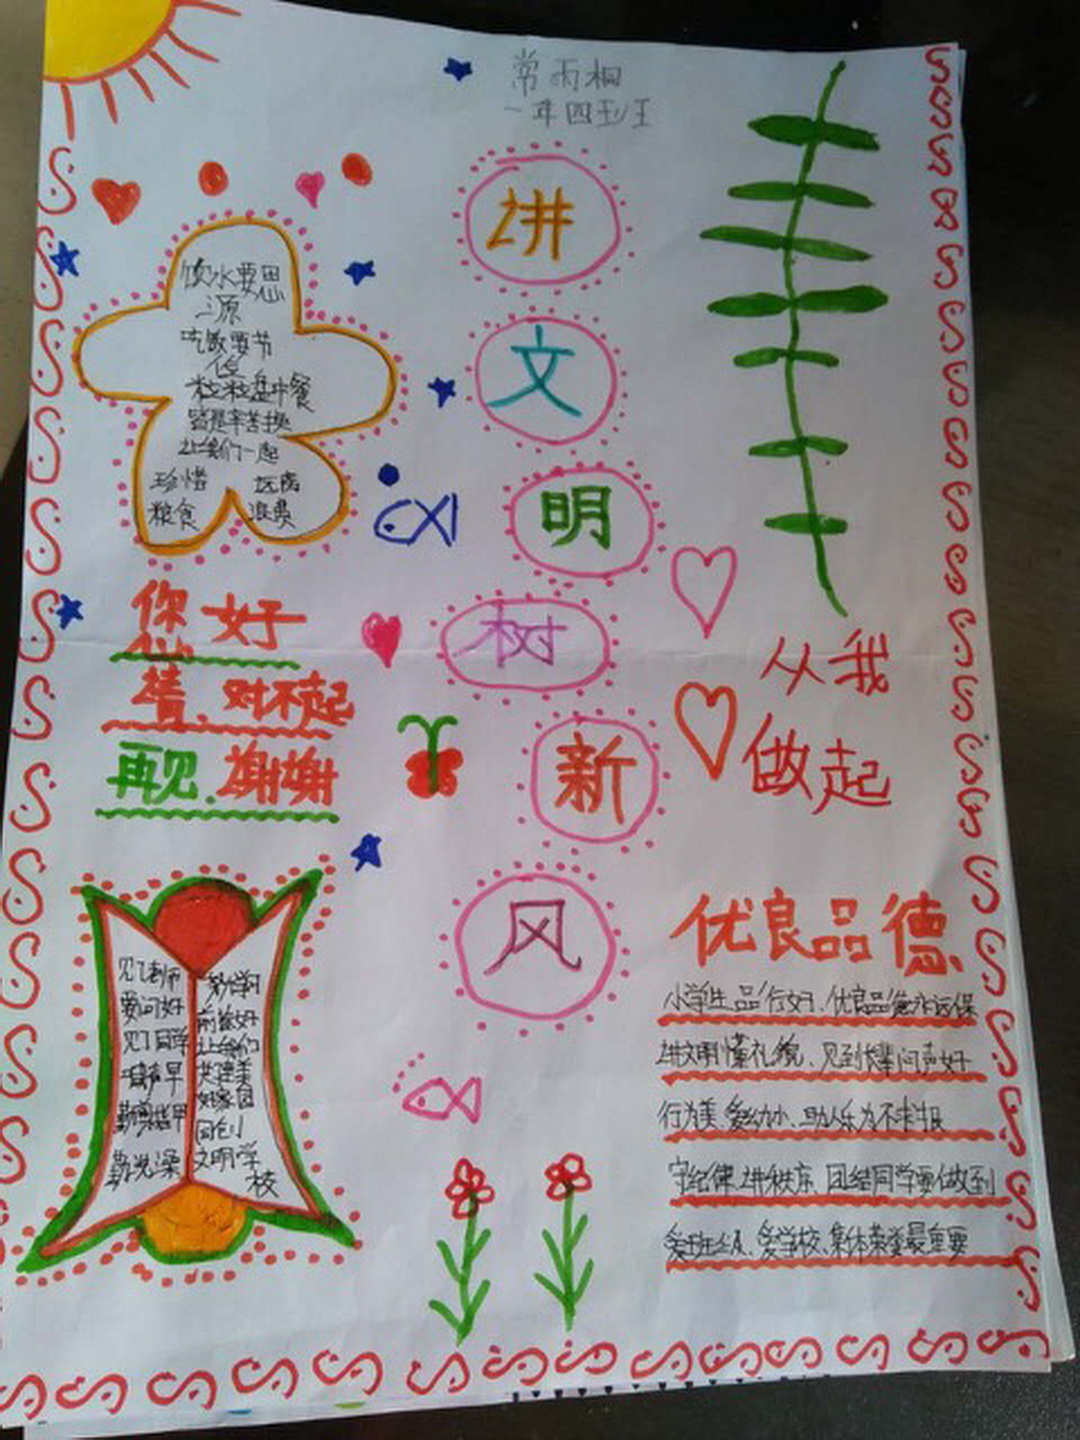 常雨桐
一年四班
讲
文
明
树
新
风
饮水要思
源
吃饭要节
俭
粒粒盘中餐
皆是辛苦换
让我们一起
珍惜 远离
粮食 浪费
您好
请.对不起
再见.谢谢
从我
做起
见了老师
要问好
见了同学
喊声早
勤剪指甲
勤洗澡
学习
让我们
共建美
好家园
同创
文明学
校
优良品德
小学生品行好、优良品德永远保
讲文明懂礼貌、见到长辈问声好
行为美爱幼小、助人乐为不求报
守纪律讲秩序、团结同学要做到
爱班级、爱学校、集体荣誉最重要